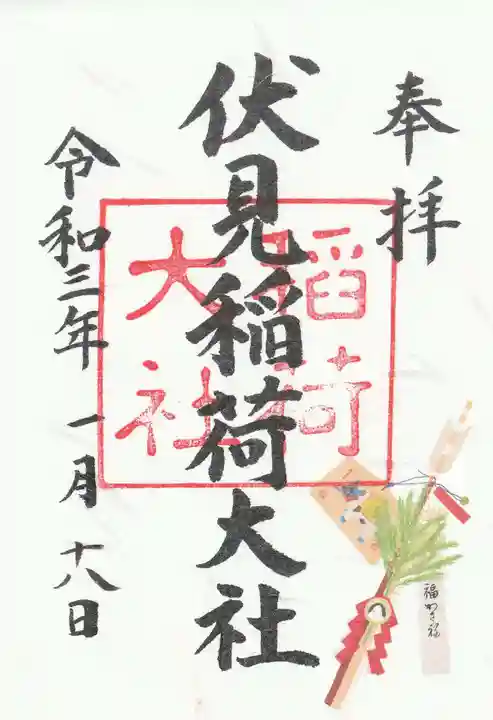 奉拝
伏見稲荷大社
稲荷
大社
令和三年 一月 十八日